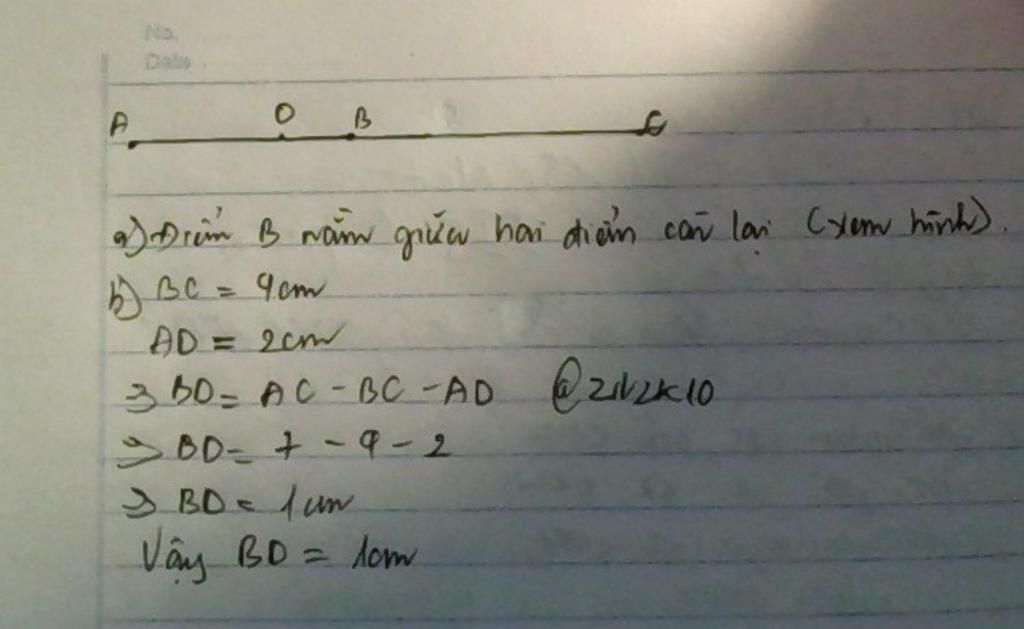 No.
Date
A D B C
a) Điểm B nằm giữa hai điểm còn lại (xem hình).
b) BC = 4cm
AD = 2cm
=> BD = AC - BC - AD @2N2K10
=> BD = 7 - 4 - 2
=> BD = 1cm
Vậy BD = 1cm